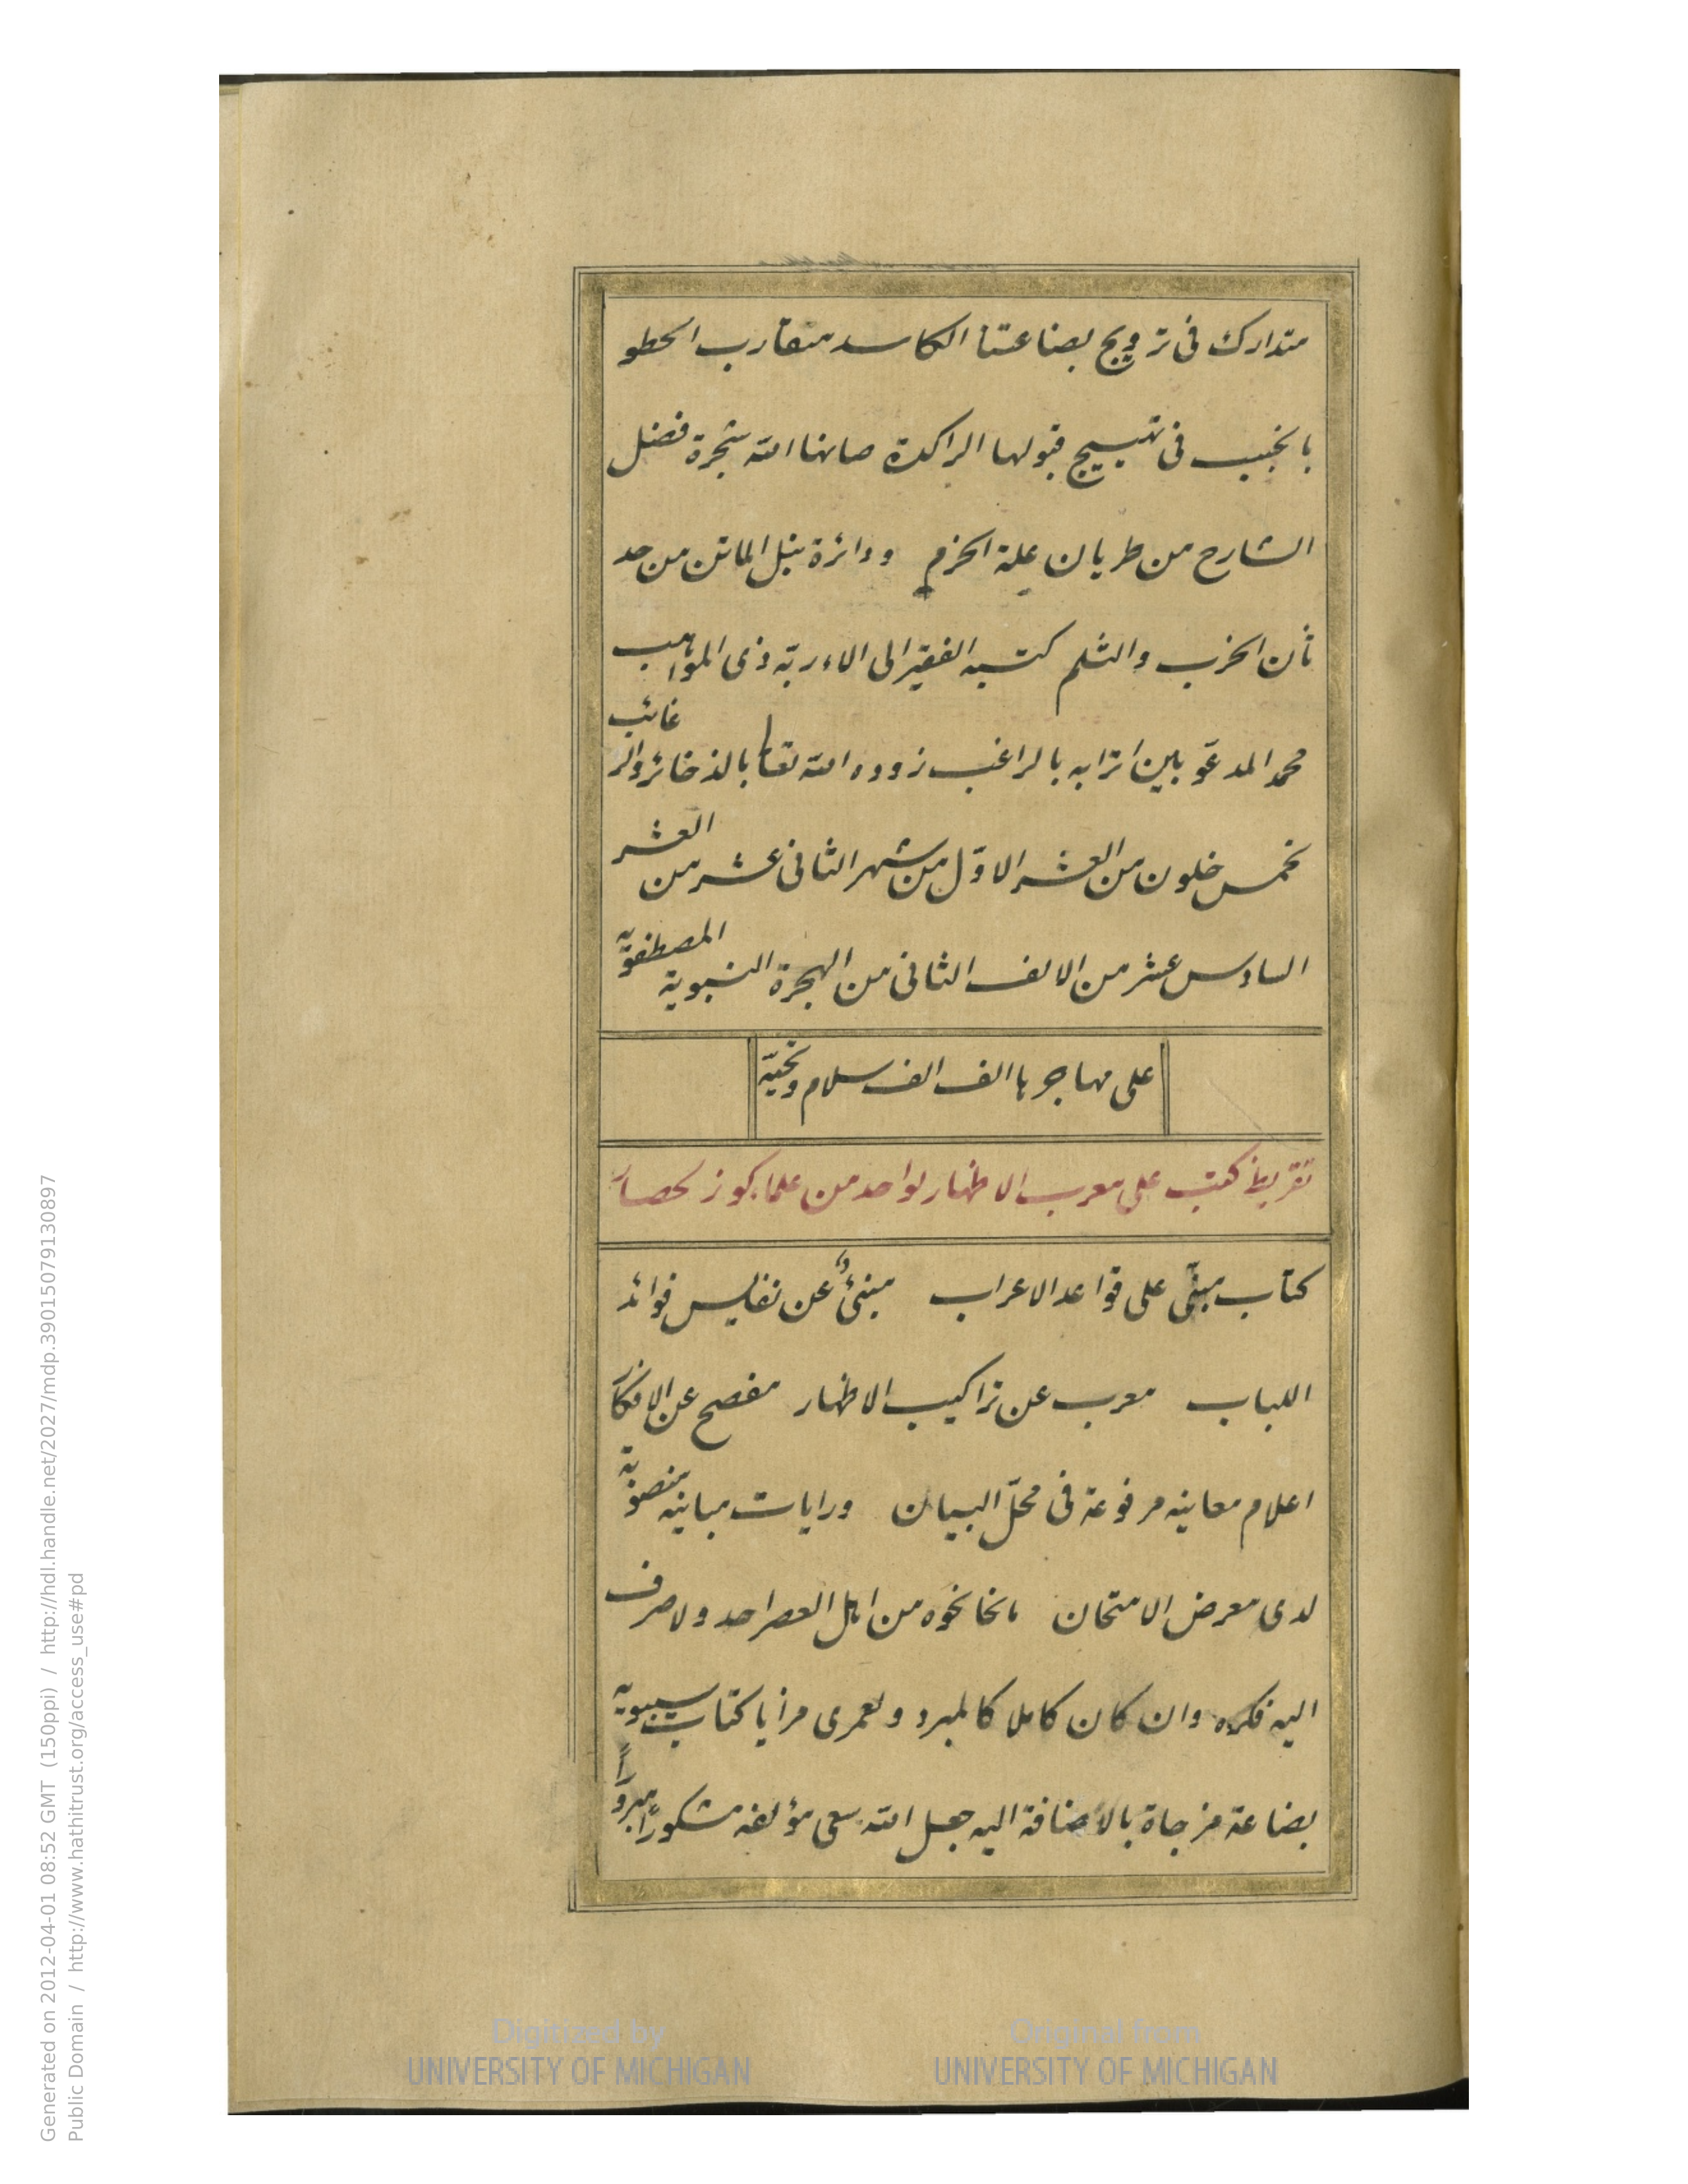 متدارك فى ترويج بضاعتنا الكاسد متقارب الخطو
بالخبب فى تهييج قبولها الراكدة صانها الله شجرة فضل
الشارح من طريان علة الخزم ودائرة نبل الماتن من حد
ثأن الخرب والثلم كتبه الفقير الى الاء ربه ذى المواهب
محمد المدعو بين اترابه بالراغب زوده الله تعا بالذخائر والرغائب
لخمس خلون من العشر الاوّل من شهر الثانى عشر من العشر
السادس عشر من الالف الثانى من الهجرة النبوية المصطفوية
على مهاجرها الف الف سلام وتحيّة
تقريظ كتب على معرب الاظهار لواحد من علما كوزلحصار
كتاب مبنىّ على قواعد الاعراب مبنئ عن نفايس فوائد
اللباب معرب عن تراكيب الاظهار مفصح عن الافكار
اعلام معانيه مرفوعة فى محلّ البيان ورايات مبانيه منصوبة
لدى معرض الامتحان مانحا نحوه من اهل العصر احد ولا صرف
اليه فكره وان كان كاملا كالمبرد ولعمرى مزايا كتاب سيبويه
بضاعة مزجاة بالاضافة اليه جعل الله سعى مؤلفه مشكورًا مبرورًا
Generated on 2012-04-01 08:52 GMT (150ppi) / http://hdl.handle.net/2027/mdp.39015079130897
Public Domain / http://www.hathitrust.org/access_use#pd
Digitized by UNIVERSITY OF MICHIGAN
Original from UNIVERSITY OF MICHIGAN